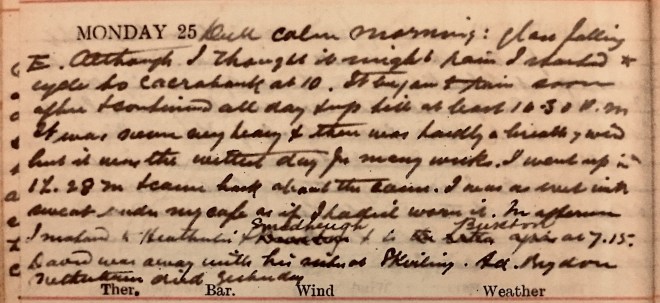 MONDAY 25 Dull calm morning: glass falling
E. Although I thought it might rain I started
cycle to at 10. It began to rain soon
after & continued all day & up till at least 10-30 P.m
It was never very heavy & there was hardly a breath of wind
but it was the wettest day for many weeks. I went up in
1h. 28 m & came back about the same. I was as wet with
sweat under my cape as if I hadn't worn it. In afternoon
I to & & to at 7.15.
David was away with his at Skirling. Ad. Brydon
died yesterday
Ther. Bar. Wind Weather